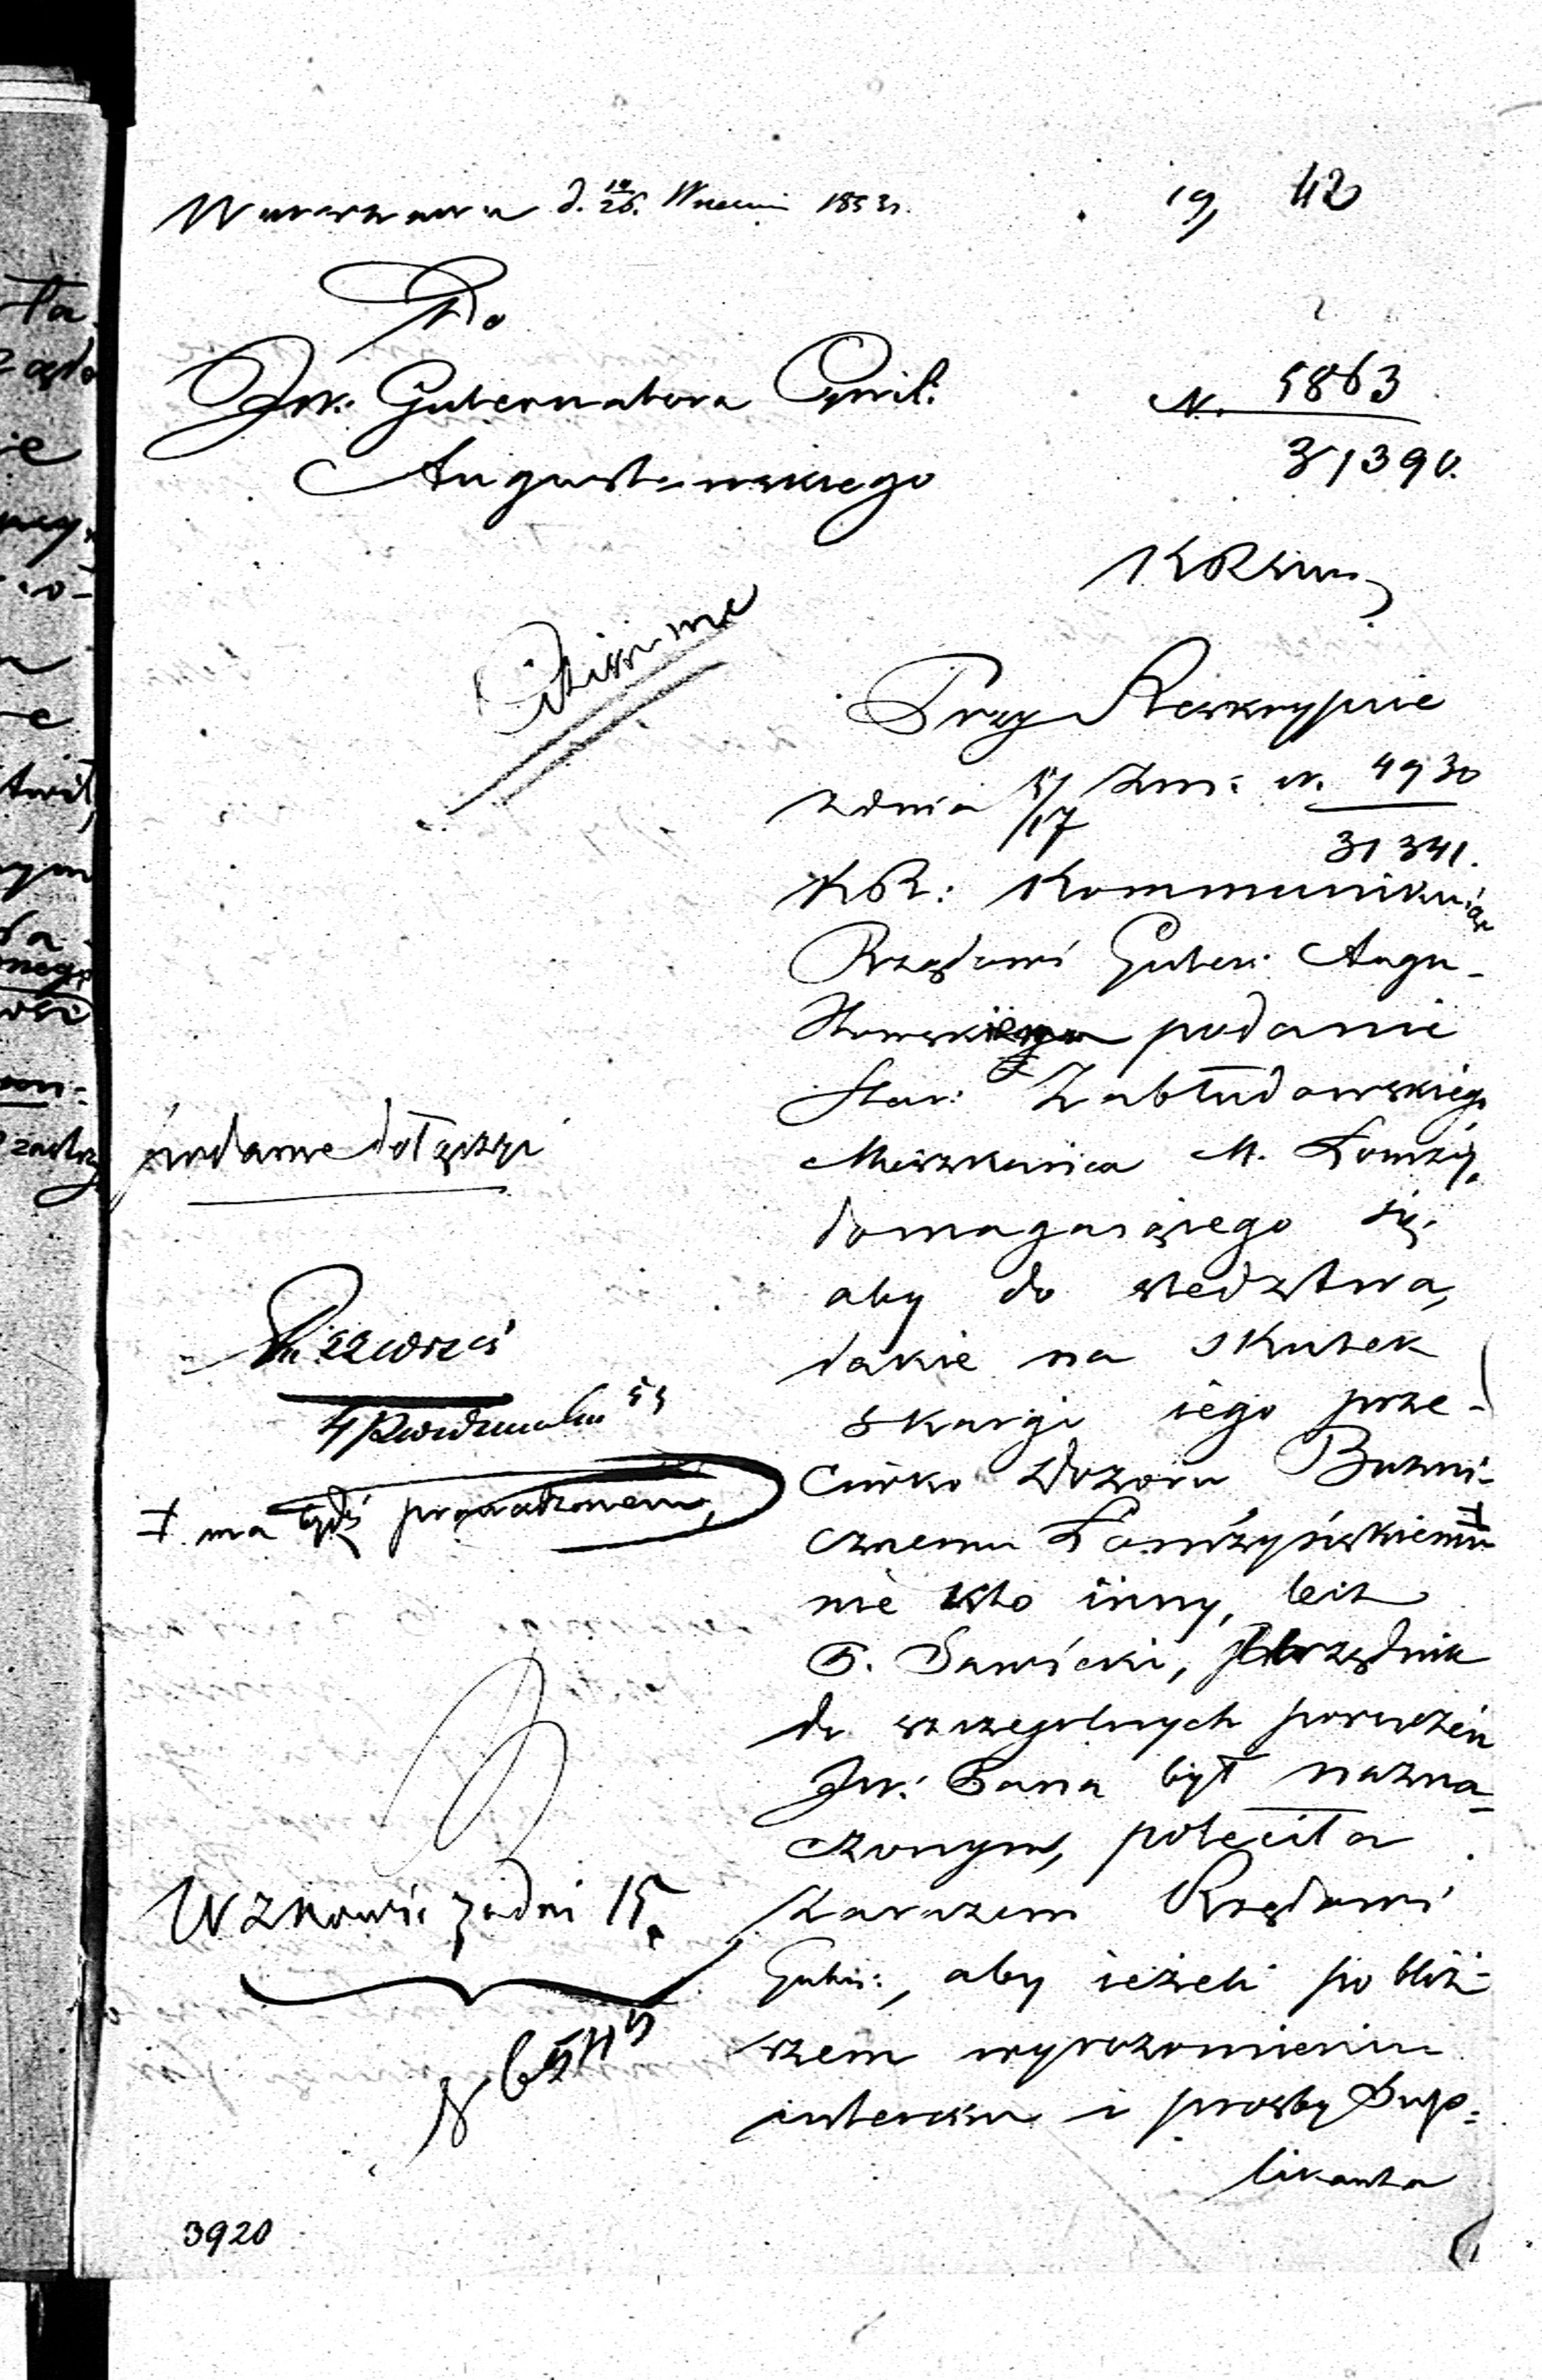 Warszawa d. 14/26. Wrześni 1853r.
19, 42
Do
JW: Gubernatora Cywil:
Augustowskiego
N. 5863
31390.
KRSW
Citissime
Przy Reskrypcie
z dnia 5/17 bm: N. 4930
31341.
KR: Kommunikuiąc
Rządowi Guber: Augu-
stowskiego podanie
Star: Zabłudowskiego
Mieszkańca M. Łomży,
domagaiącego się,
aby do śledztwa,
iakie na skutek
skargi iego prze-
ciwko Dozoru Bużni-
cznemu Łomżyńskiemu ±
nie kto inny, lecz
P. Sawicki, Urzędnik
do szczegolnych poruczeń
JW: Pana był nazna-
czonym, poleciła
zarazem Rządowi
Guber:, aby ieżeli po bliż-
szem wyrozumieniu
interessu i prosby Sup-
likanta
podanie dołączyć
± ma bydź prowadzonem,
Wznowić za dni 15.
3920